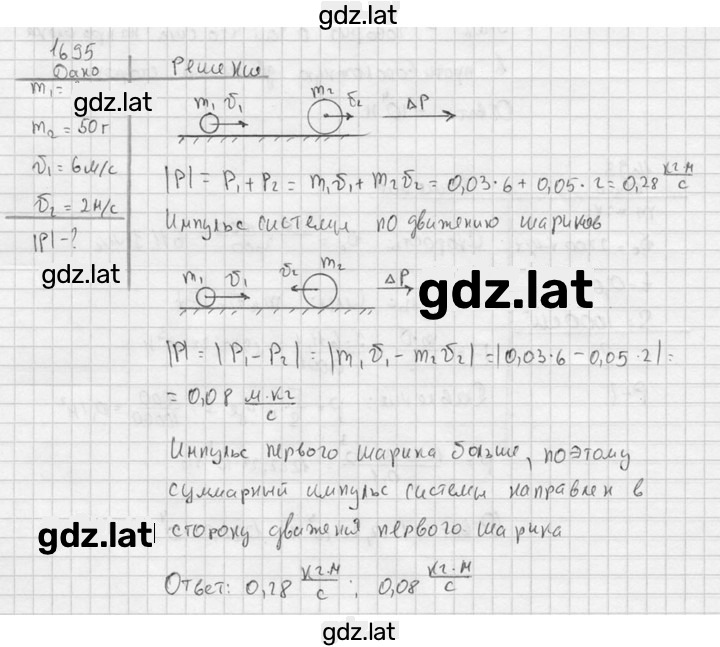 gdz.lat
1695
Дано
Решения
m₁ =
gdz.lat
m₂ = 50 г
υ₁ = 6 м/с
υ₂ = 2 м/с
|P| - ?
gdz.lat
m₁ υ₁ m₂ υ₂ ΔP
|P| = P₁ + P₂ = m₁υ₁ + m₂υ₂ = 0,03·6 + 0,05·2 = 0,28 кг·м/с
Импульс системы по движению шариков
m₁ υ₁ υ₂ m₂ ΔP
gdz.lat
|P| = |P₁ - P₂| = |m₁υ₁ - m₂υ₂| = |0,03·6 - 0,05·2| =
= 0,08 м·кг/с
Импульс первого шарика больше, поэтому
суммарный импульс системы направлен в
gdz.lat
сторону движения первого шарика
Ответ: 0,28 кг·м/с ; 0,08 кг·м/с
gdz.lat